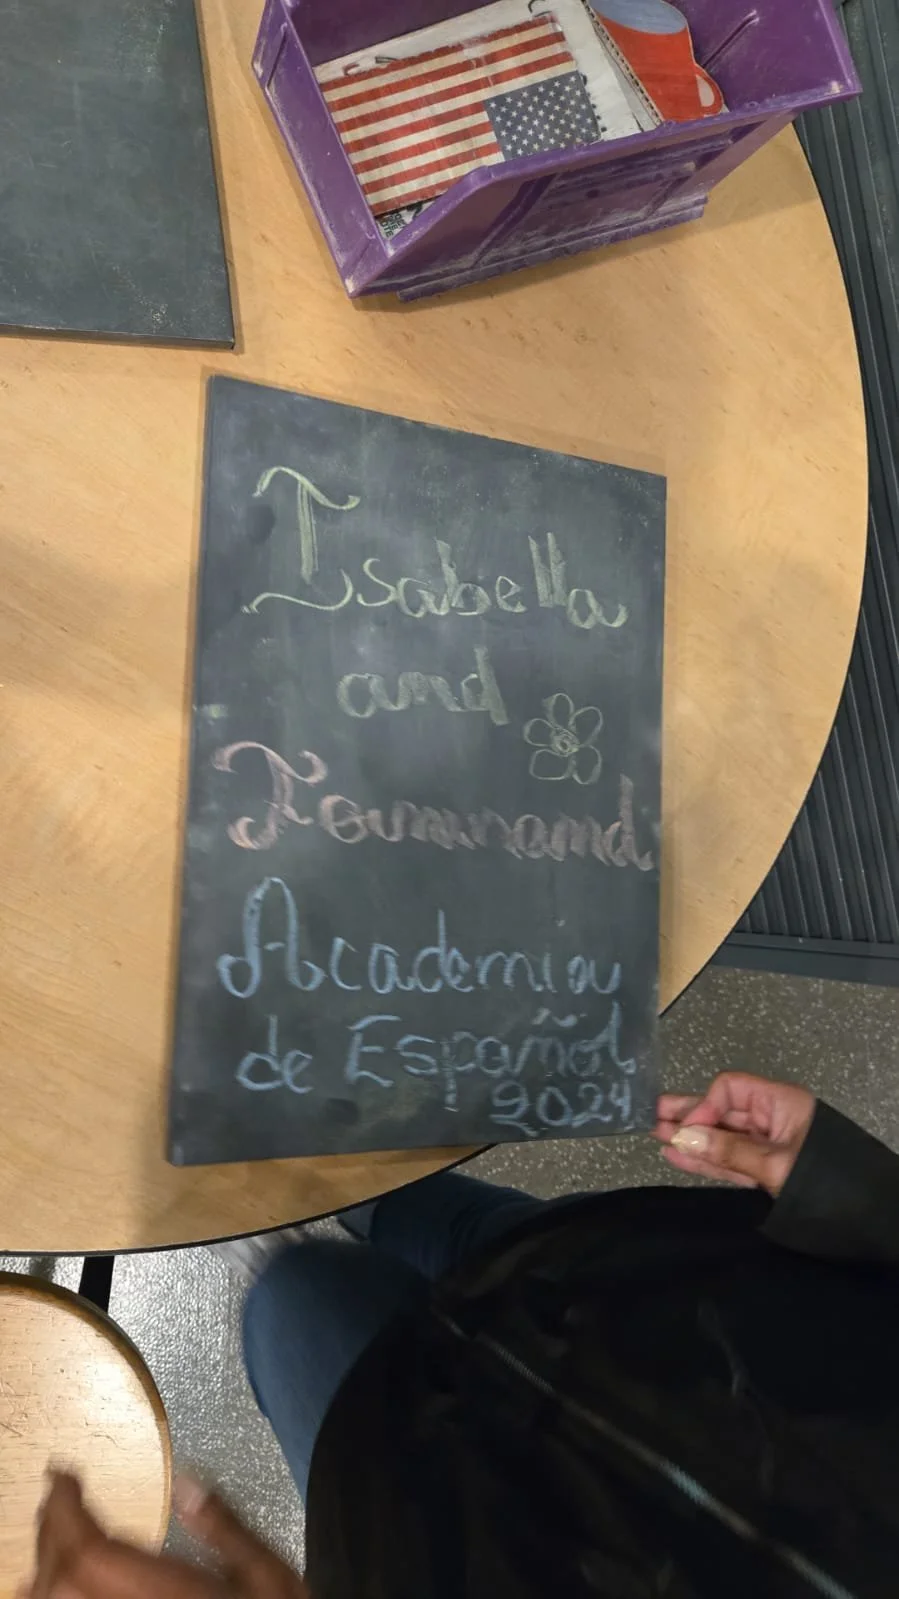 Isabella
and
Academia
de Español
2024